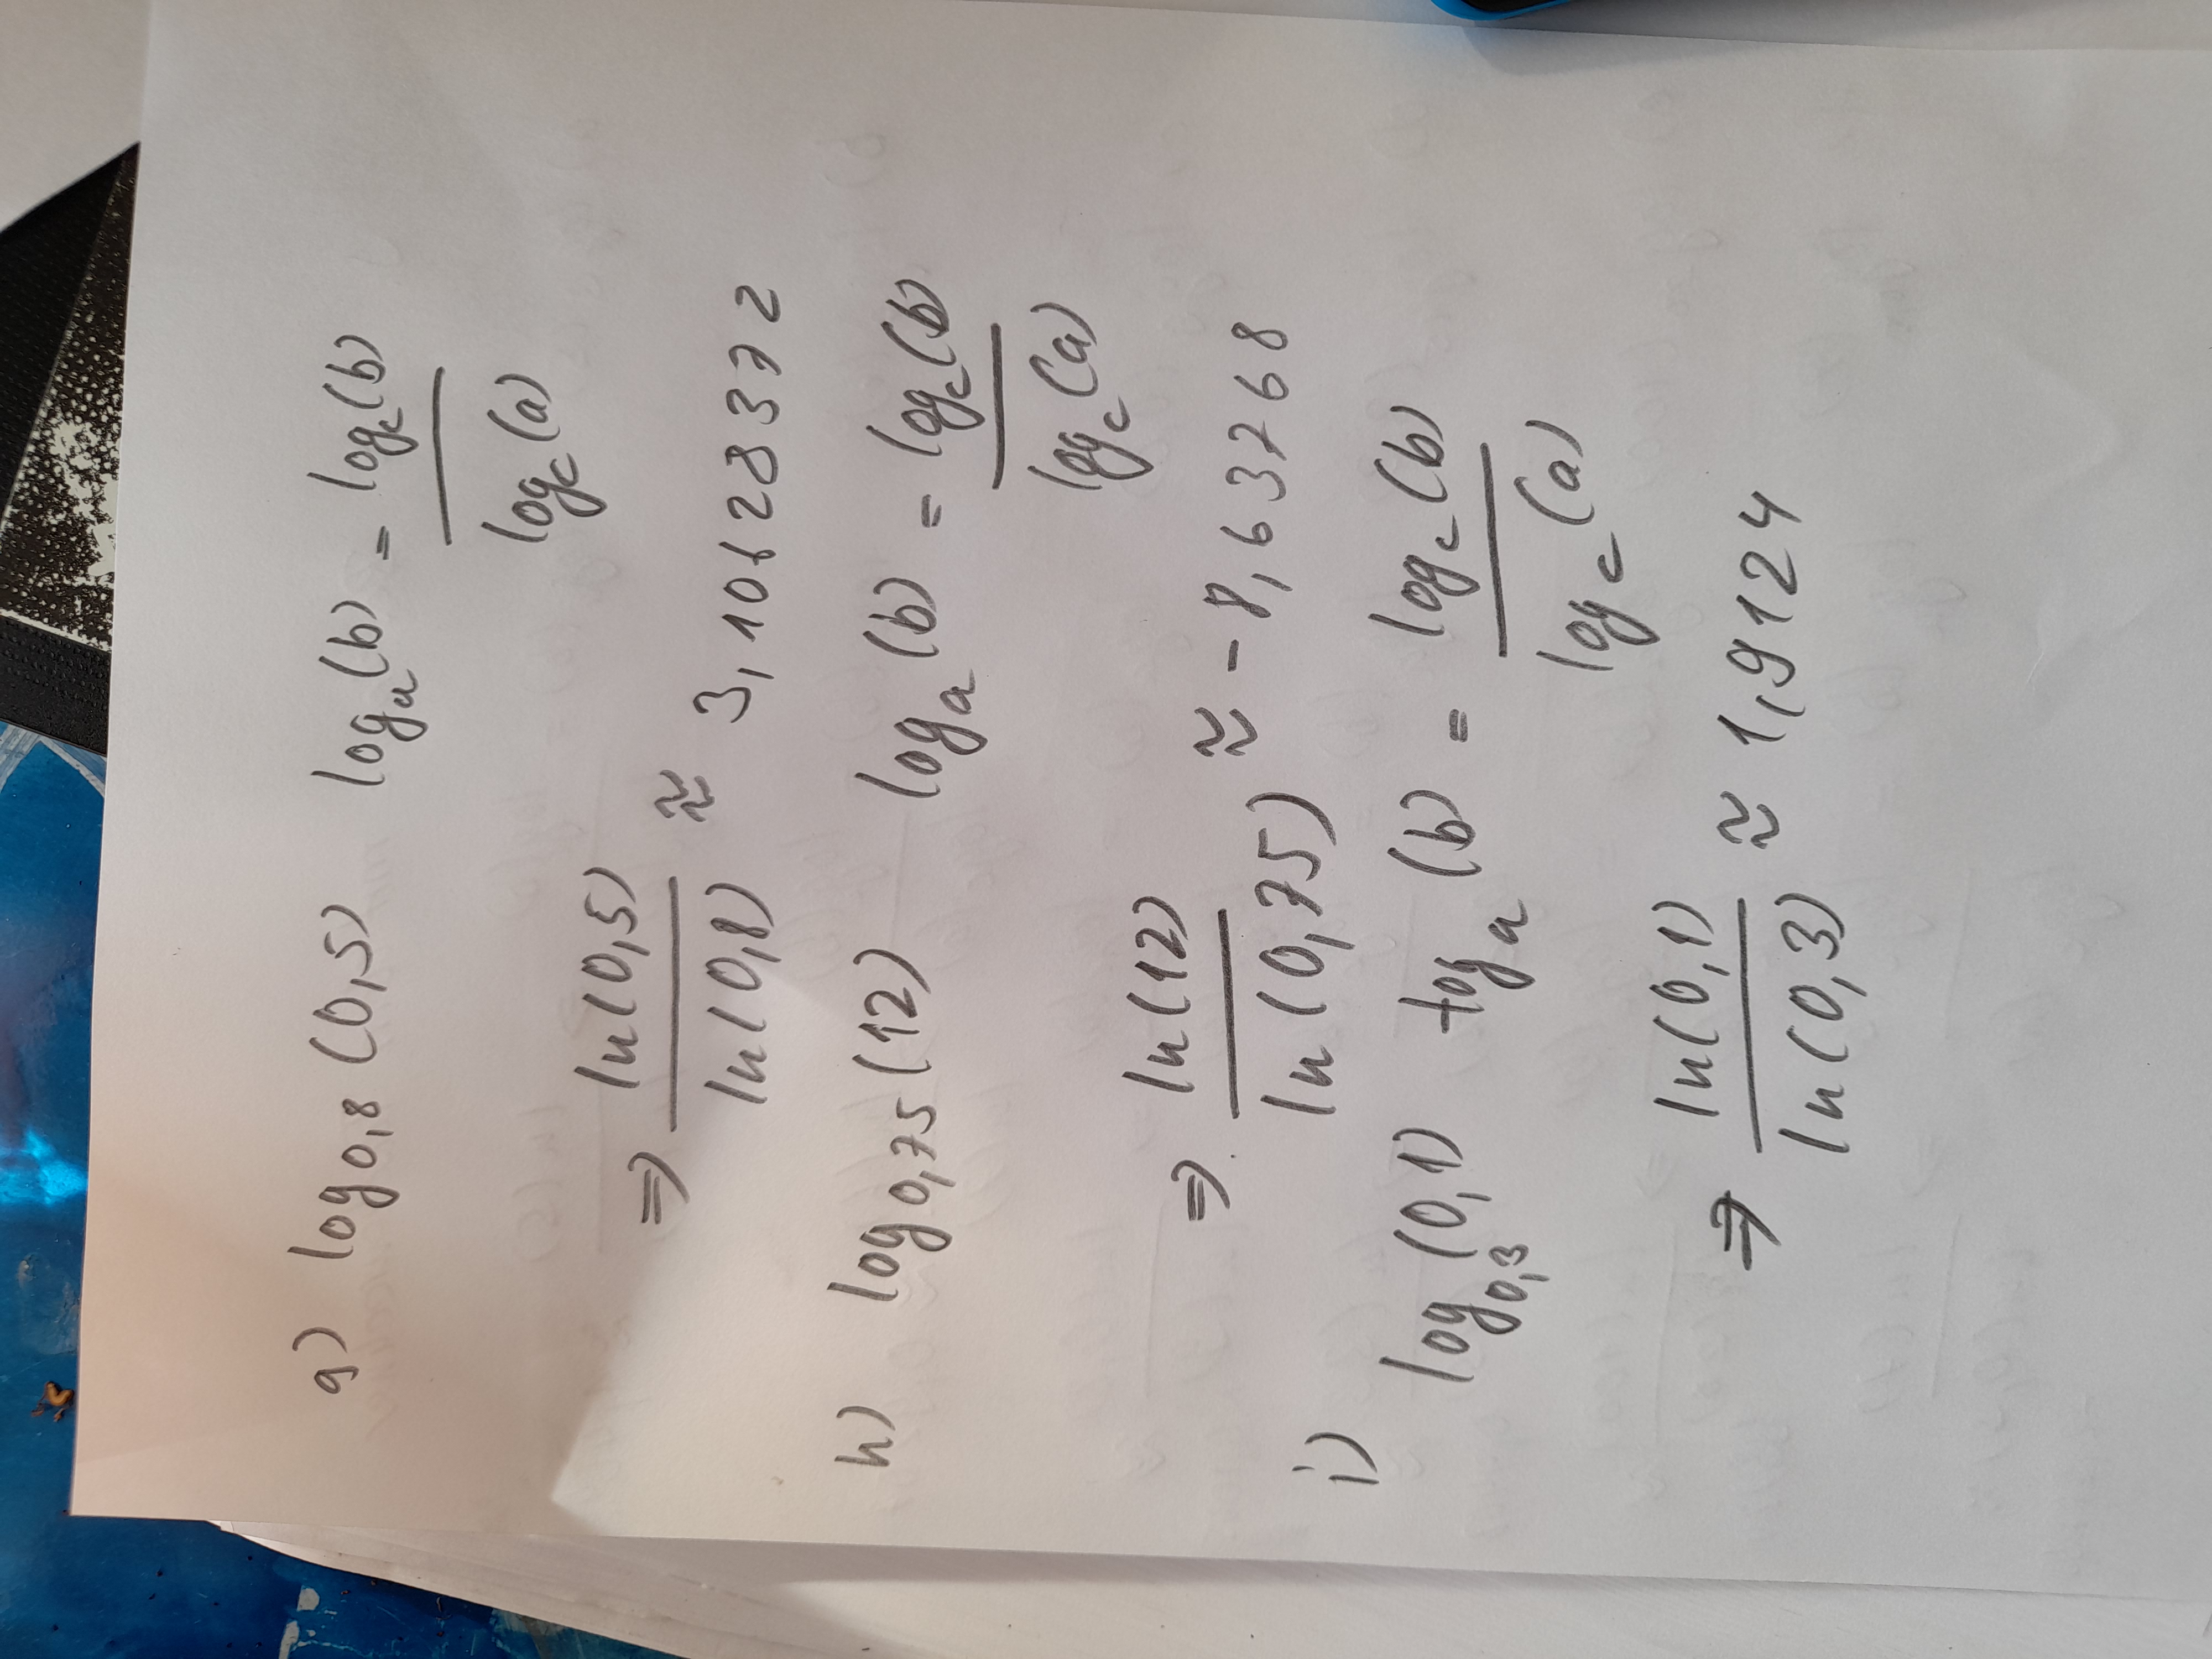 g) log 0,8 (0,5) log a (b) = log c (b) / log c (a)
⇒ ln(0,5) / ln(0,8) ≈ 3,10628372
h) log 0,75 (12) log a (b) = log c (b) / log c (a)
⇒ ln(12) / ln(0,75) ≈ -8,637268
i) log 0,3 (0,1) log a (b) = log c (b) / log c (a)
⇒ ln(0,1) / ln(0,3) ≈ 1,9124